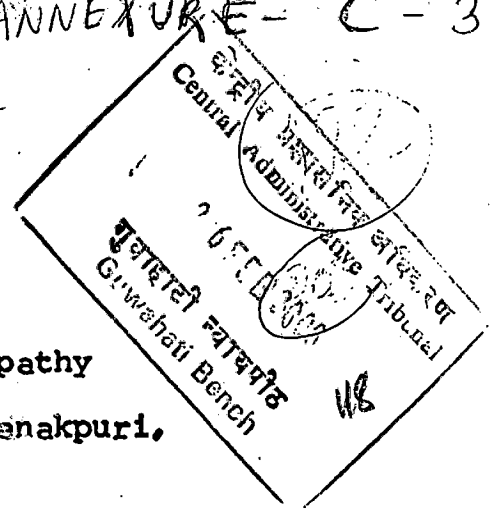 ANNEXURE - C - 3
केन्द्रीय प्रशासनिक अधिकरण
Central Administrative Tribunal
गुवाहाटी न्यायपीठ
Guwahati Bench
118
pathy
anakpuri,